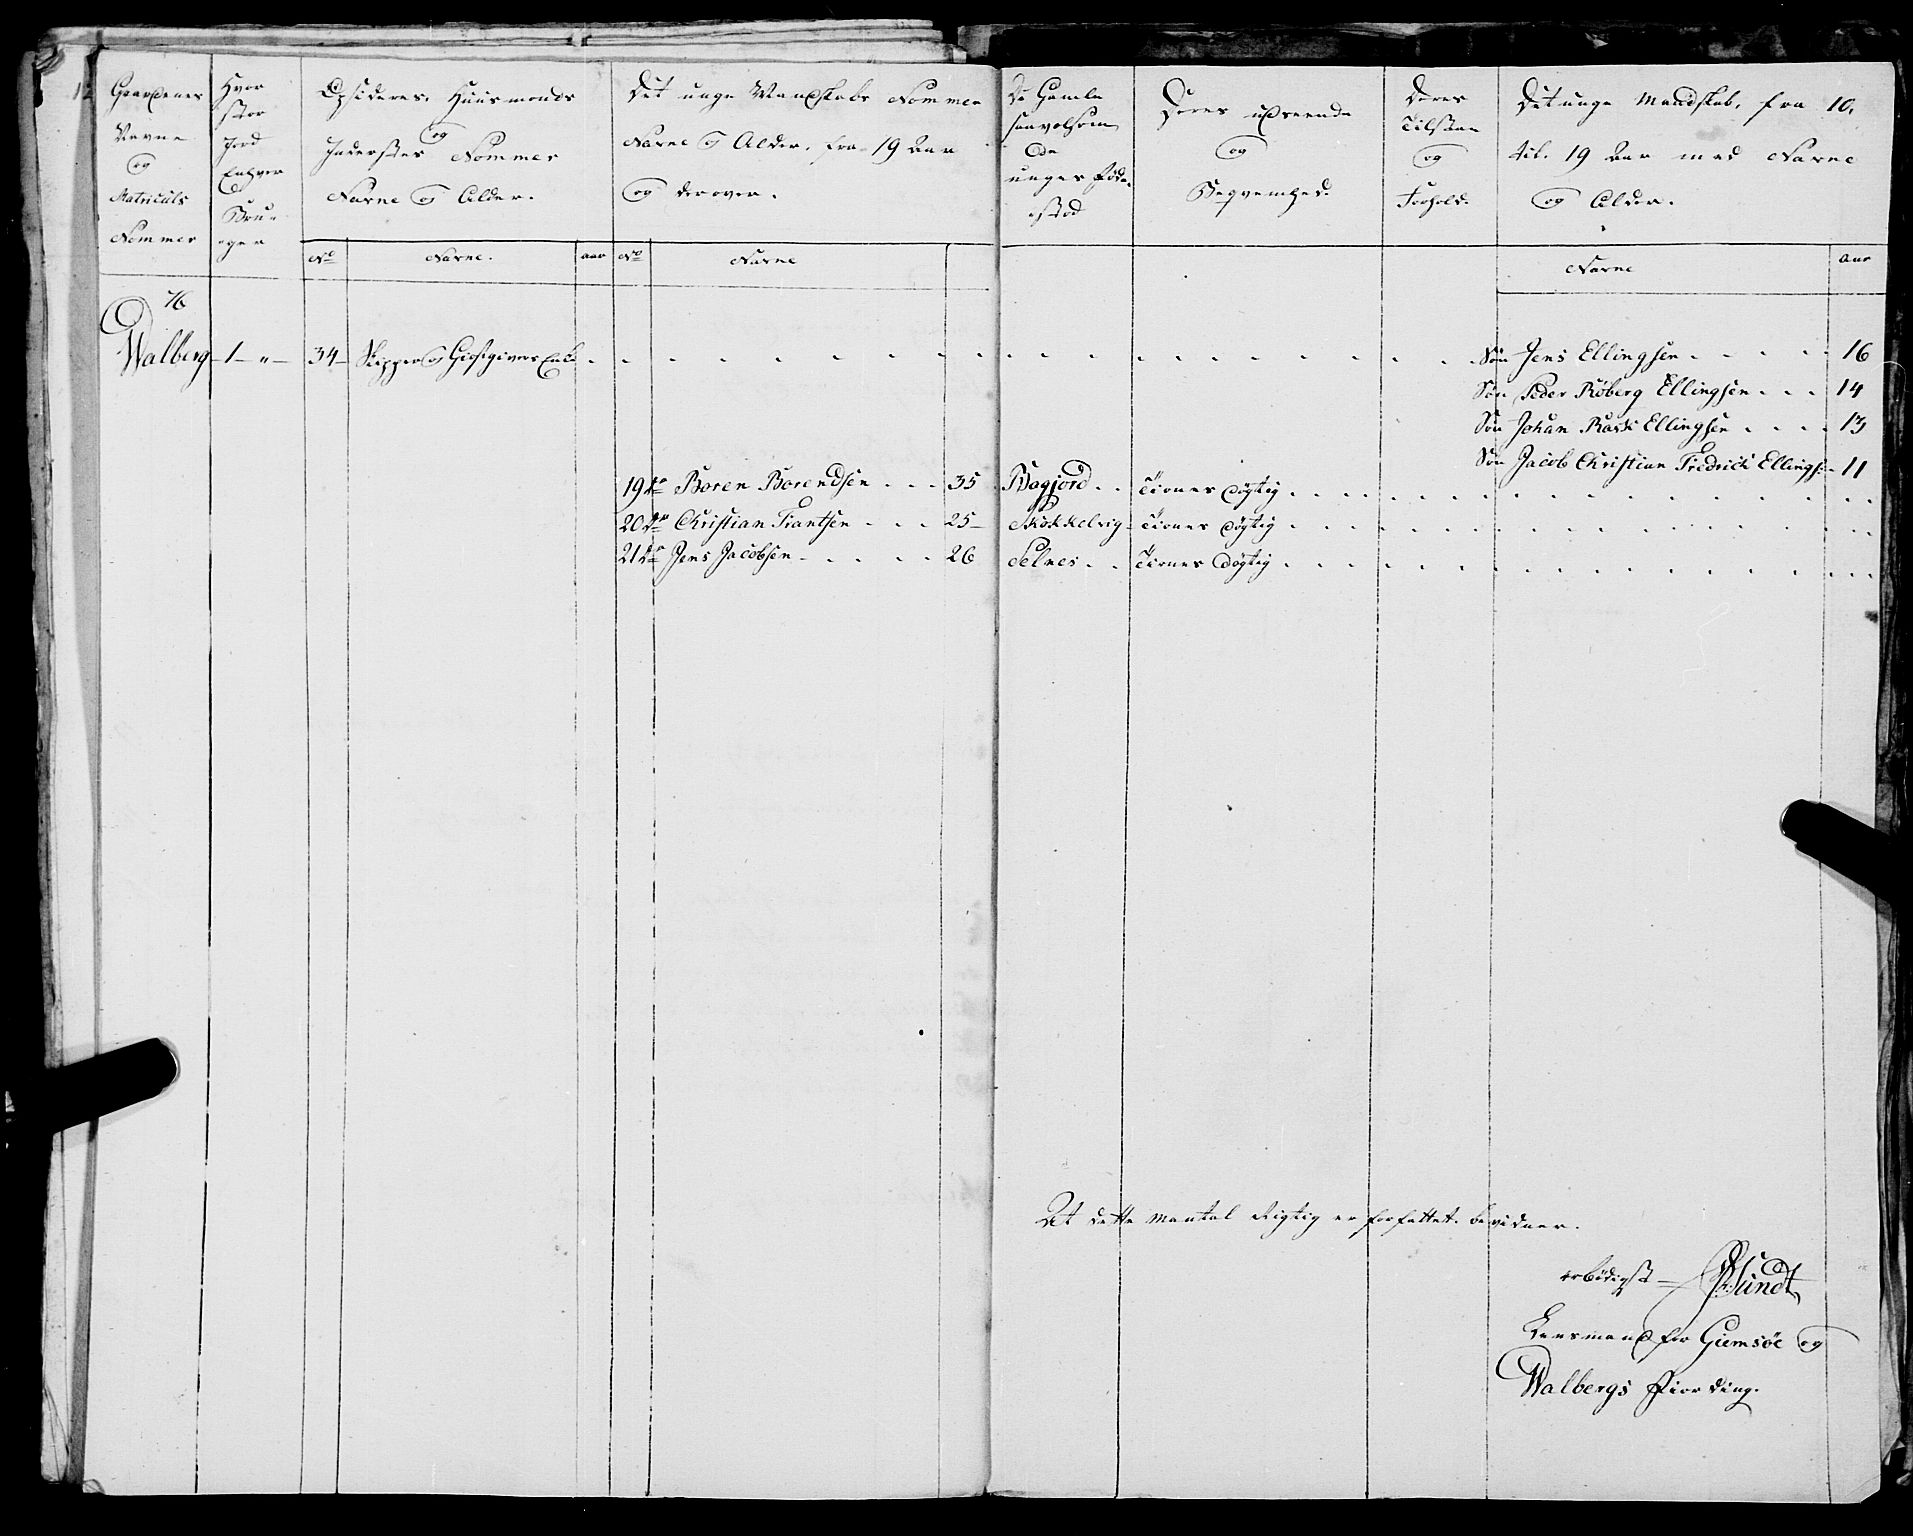 Gaardenes
Navne
og
Matriculs
Nommer
Hvor
stor
Jord
Enhver
Bru-
ger
Opsideres, Huusmonds
og
Inderstes Nommer
Navne og Alder.
Det unge Mandskabs Nommer
Navne og Alder, fra 19 Aar
og derover.
De Gamle
saavelsom
de
unges Føde-
stæd
Deres udseende
og
Beqvemhed.
Deres
Tilstan
og
Forhold.
Det unge Mandskab, fra 10,
til 19 Aar med Navne
og Alder.
No Navne. aar No Navne Navne Aar
76
Walberg 1 " 34 Skipper og Giestgivers Enke Søn Jens Ellingsen 16
Søn Peder Røberg Ellingsen 14
Søn Johan Rask Ellingsen 13
Søn Jacob Christian Fredrich Ellings: 11
19 Boren Borendsen 35 Bagjord Tienes døgtig
20 Christian Frantsen 25 Skokkelvig Tienes døgtig
21 Jens Jacobsen 26 Selnes Tienes døgtig
At dette Mantal Rigtig er forfattet bevidner.
erbødigst Sundt
Lensmand for Giemsøe og
Walbergs Fiording.